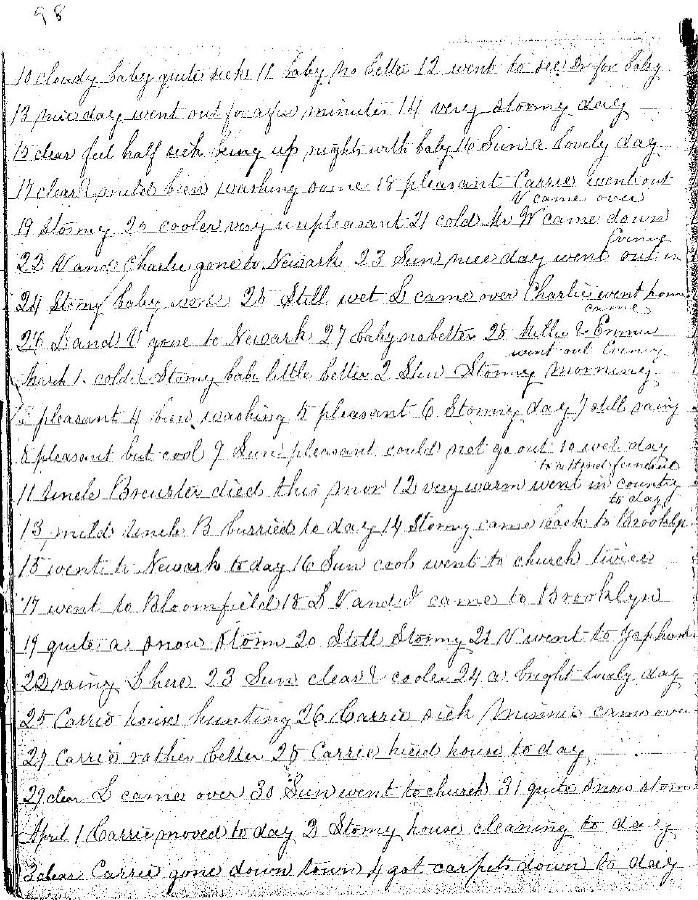 98
10 cloudy baby quite sick 11 baby no better 12 went to see Dr for baby
13 nice day went out for a few minutes 14 very stormy day
15 clear feel half sick being up nights with baby 16 Sun a lovely day
17 clear & mild been washing some 18 pleasant Carrie went out
V came over
19 Stormy 20 cooler very unpleasant 21 cold Mr W came down
Evening
22 V and Charlie gone to Newark 23 Sun nice day went out in
24 Stormy baby worse 25 Still wet L came over Charlie went home
came
26 L and V gone to Newark 27 baby no better 28 Millie & Emma
went out Evening
March 1 cold & Stormy babe little better 2 Sun Stormy morning
3 pleasant 4 been washing 5 pleasant 6 Stormy day 7 still rainy
8 pleasant but cool 9 Sun pleasant could not go out 10 wet day
to attend funeral
11 Uncle Brewster died this mor 12 very warm went in country
to day
13 mild Uncle B burried to day 14 Stormy came back to Brooklyn
15 went to Newark to day 16 Sun cool went to church twice
17 went to Bloomfield 18 L V and I came to Brooklyn
19 quite a snow storm 20 Still Stormy 21 V went to Yaphank
22 rainy L here 23 Sun clear & cooler 24 a bright lovely day
25 Carrie house hunting 26 Carrie sick Minnie came over
27 Carrie rather better 28 Carrie hired house to day
29 clear L came over 30 Sun went to church 31 quite snow storm
April 1 Carrie moved to day 2 Stormy house cleaning to day
3 clear Carrie gone down town 4 got carpets down to day